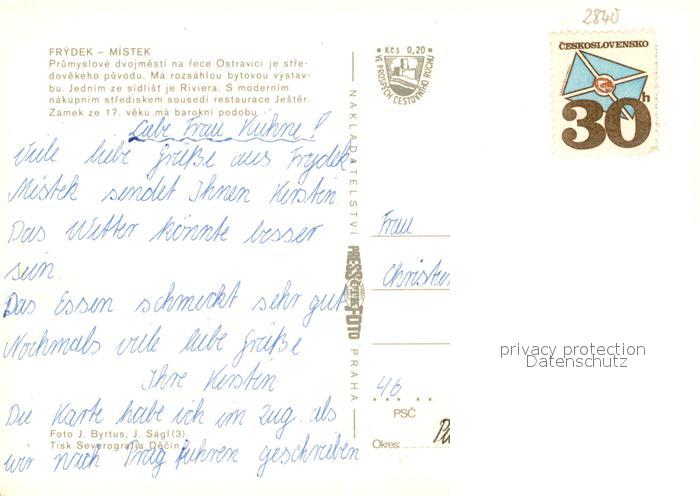 2840
FRÝDEK – MÍSTEK
Průmyslové dvojměstí na řece Ostravici je stře-
dověkého původu. Má rozsáhlou bytovou výstav-
bu. Jedním ze sídlišť je Riviera. S moderním
nákupním střediskem sousedí restaurace Ještěr.
Zámek ze 17. věku má barokní podobu.
Kčs 0,20
VE PROSPĚCH CESTOVNÍHO RUCHU
ČESKOSLOVENSKO
30h
Liebe Frau Kühne!
Viele liebe Grüße aus Frydek
Mistek sendet Ihnen Kerstin.
Das Wetter könnte besser
sein.
Das Essen schmeckt sehr gut
Nochmals viele liebe Grüße
Ihre Kerstin
Die Karte habe ich im Zug. als
wir nach Prag fuhren geschrieben
Foto J. Byrtus, J. Ságl (3)
Tisk Severografia Děčín
NAKLADATELSTVÍ
PRESSFOTO
PRAHA
Frau
46
PSČ
Okres:
privacy protection
Datenschutz